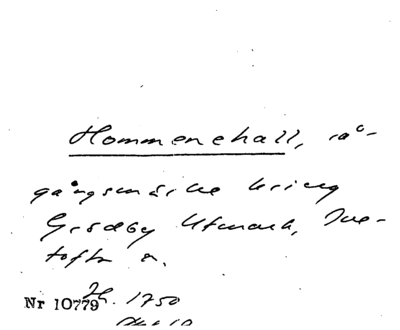 Hommenehall, rå-
gångsmärke kring
Grödby Utmark, Sve-
tofta s.
Nr 10779 Zh. 1750